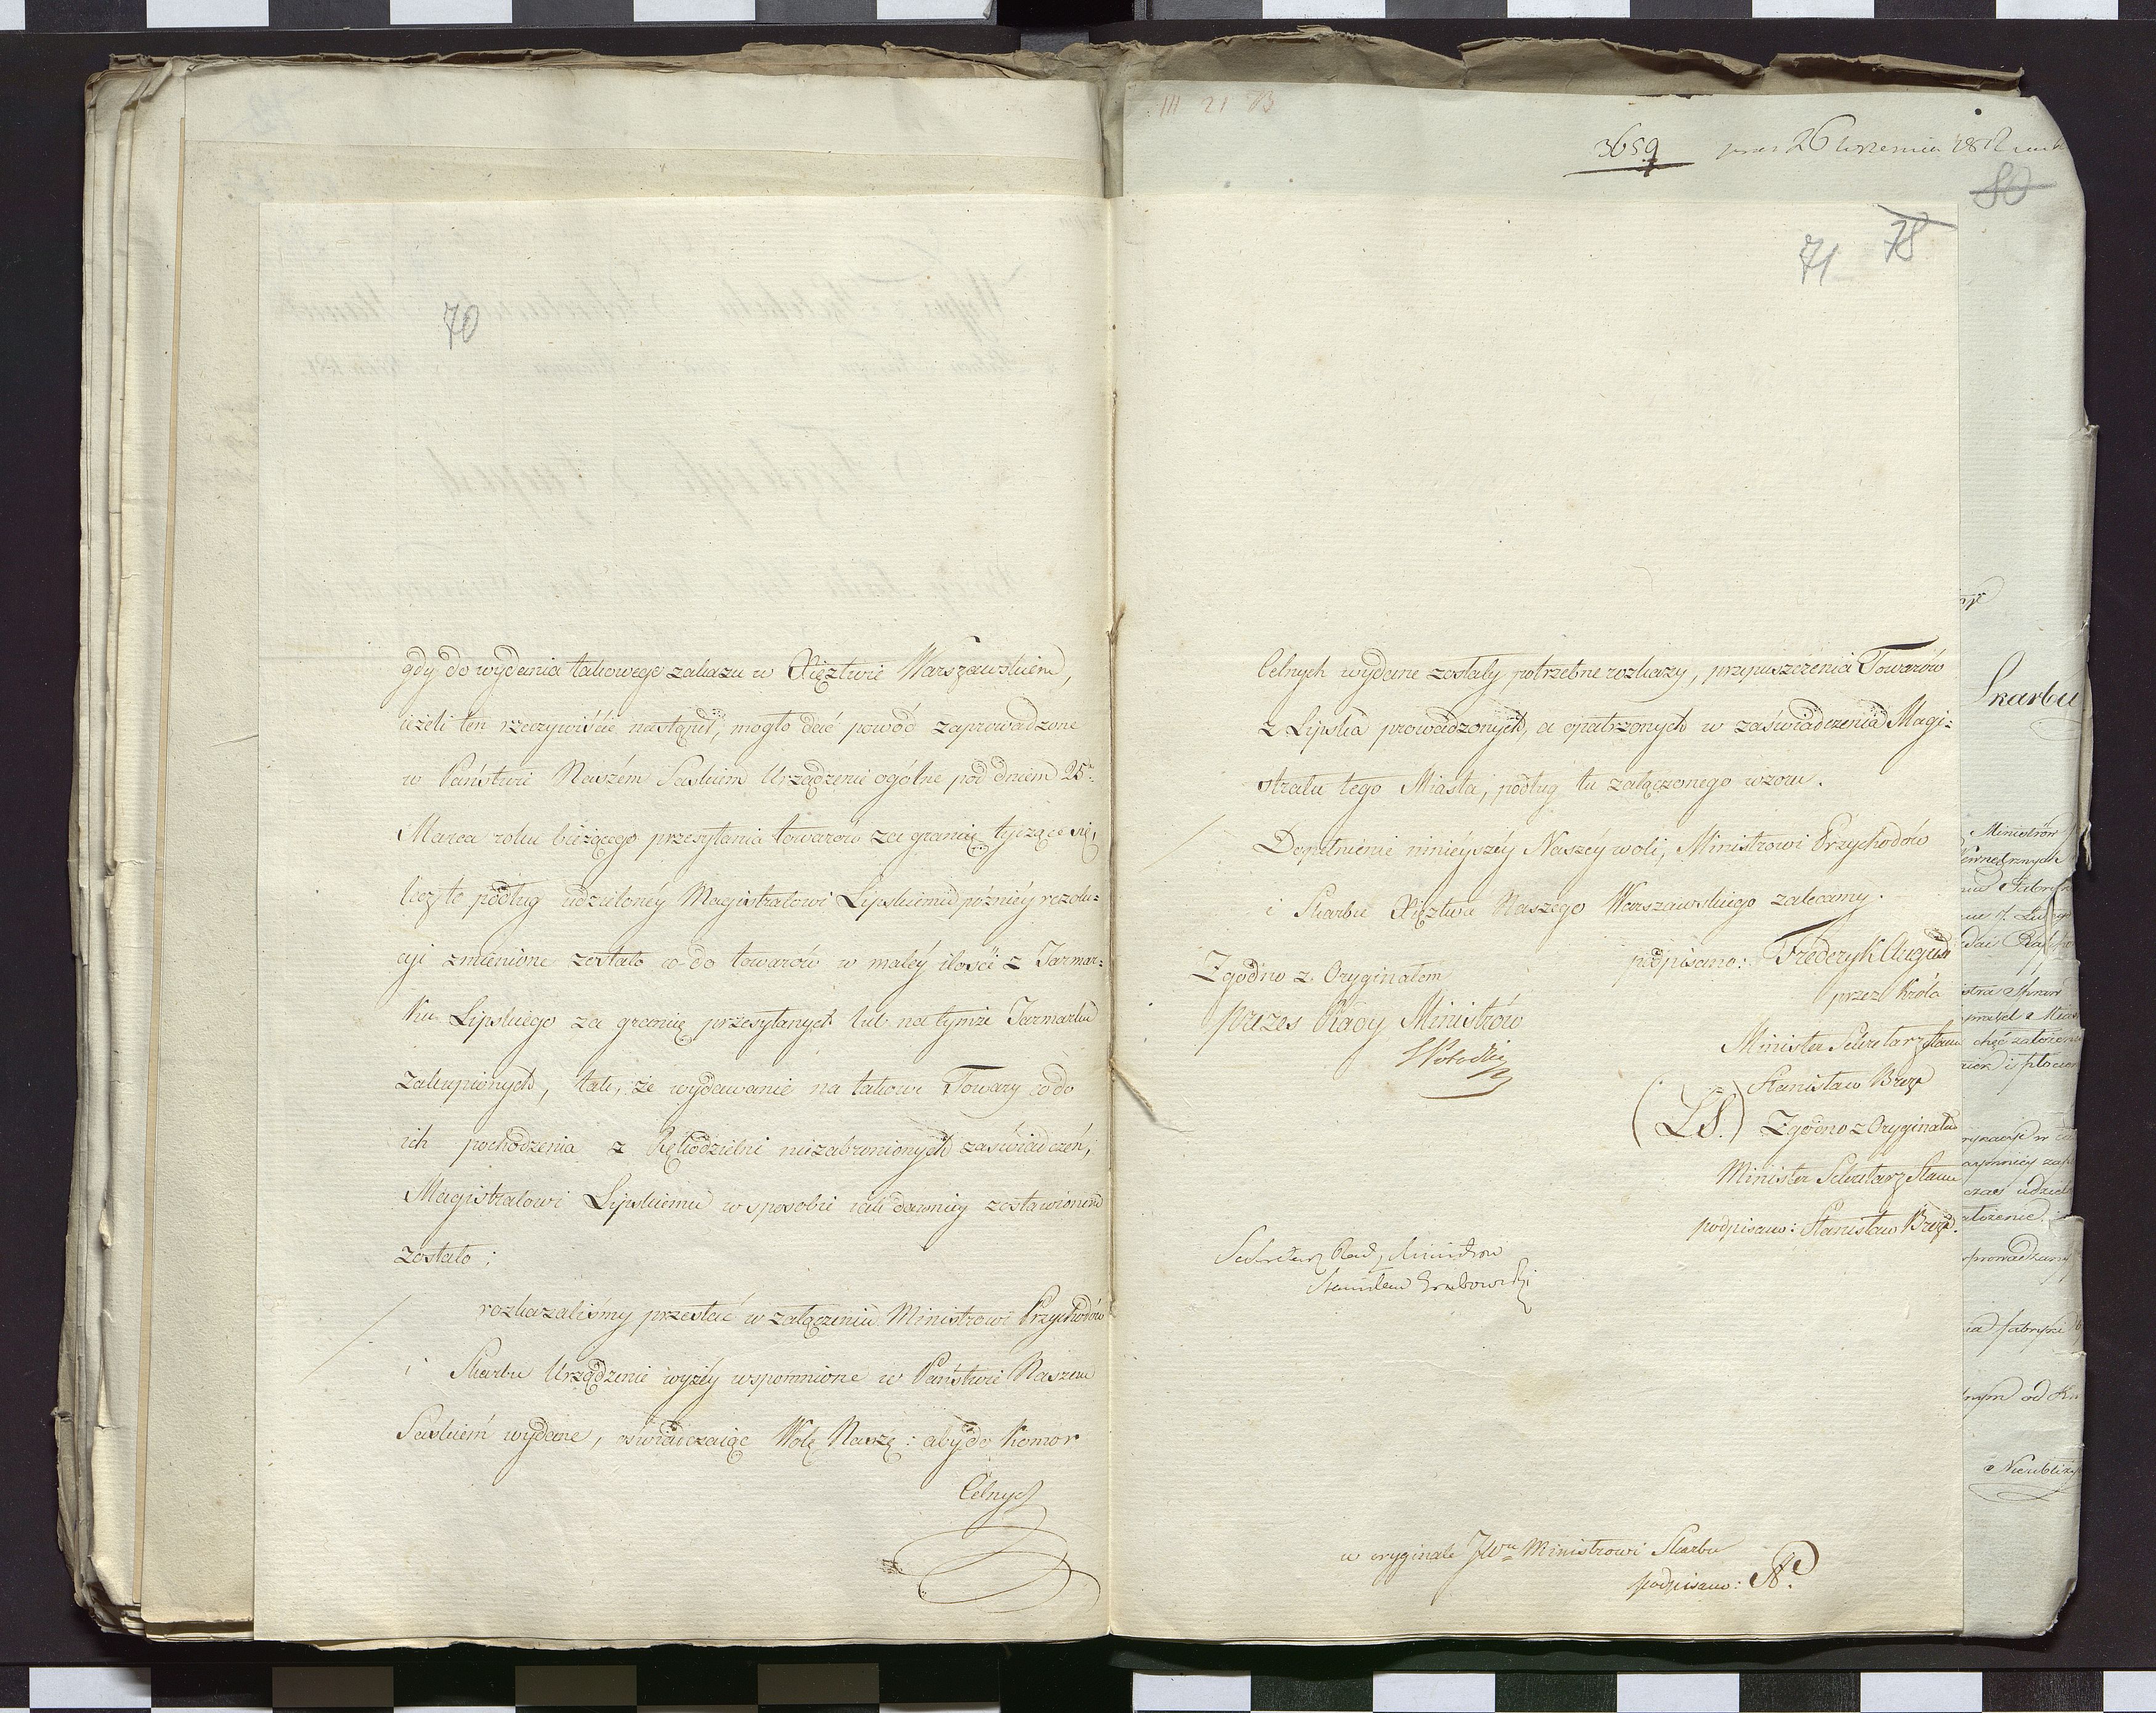 70
gdy do wydania takowego zakazu w Xięztwie Warszawskiem,
ieżeli ten rzeczywiście nastąpił, mogło dać powód zaprowadzone
w Państwie Naszém Saskiem Urządzenie ogólne pod dniem 25º
Marca roku bieżącego przesyłania towarów za granicę tyczące się,
lecz to podług udzieloney Magistratowi Lipskiemu późniéy rezolu=
cyi zmienione zostało co do towarów w małéy ilości z Jarmar=
ku Lipskiego za granicę przesyłanych lub na tymże Jarmarku
zakupionych, tak, że wydawanie na takowe Towary co do
ich pochodzenia z Rękodzielni niezabronionych zaświadczeń,
Magistratowi Lipskiemu w sposobie iak dawniey zostawionem
zostało;
rozkazaliśmy przesłać w załączeniu Ministrowi Przychodów
i Skarbu Urządzenie wyżéy wspomnione w Państwie Naszem
Saskiém wydane, oświadczaiąc Wolę Naszę: aby do Komor
Celnych
III 21 83
3659 26 Września 1812
80
71 78
Celnych wydane zostały potrzebne rozkazy, przepuszczenia Towarów
z Lipska prowadzonych, a opatrzonych w zaświadczenia Magi=
stratu tego Miasta, podług tu załączonego wzoru.
Dopełnienie ninieyszéy Naszéy woli, Ministrowi Przychodów
i Skarbu Xięztwa Naszego Warszawskiego zalecamy.
podpisano: Frederyk August
Zgodno z Oryginałem
przez Króla
Prezes Rady Ministrów
Minister Sekretarz Stanu
Stanisław Breza
(LS.) Zgodno z Oryginałem
Minister Sekretarz Stanu
podpisano: Stanisław Breza.
Sekretarz Rady Ministrów
Stanisław Grabowski
w oryginale JWu Ministrowi Skarbu
podpisano:
Skarbu
Ministrów